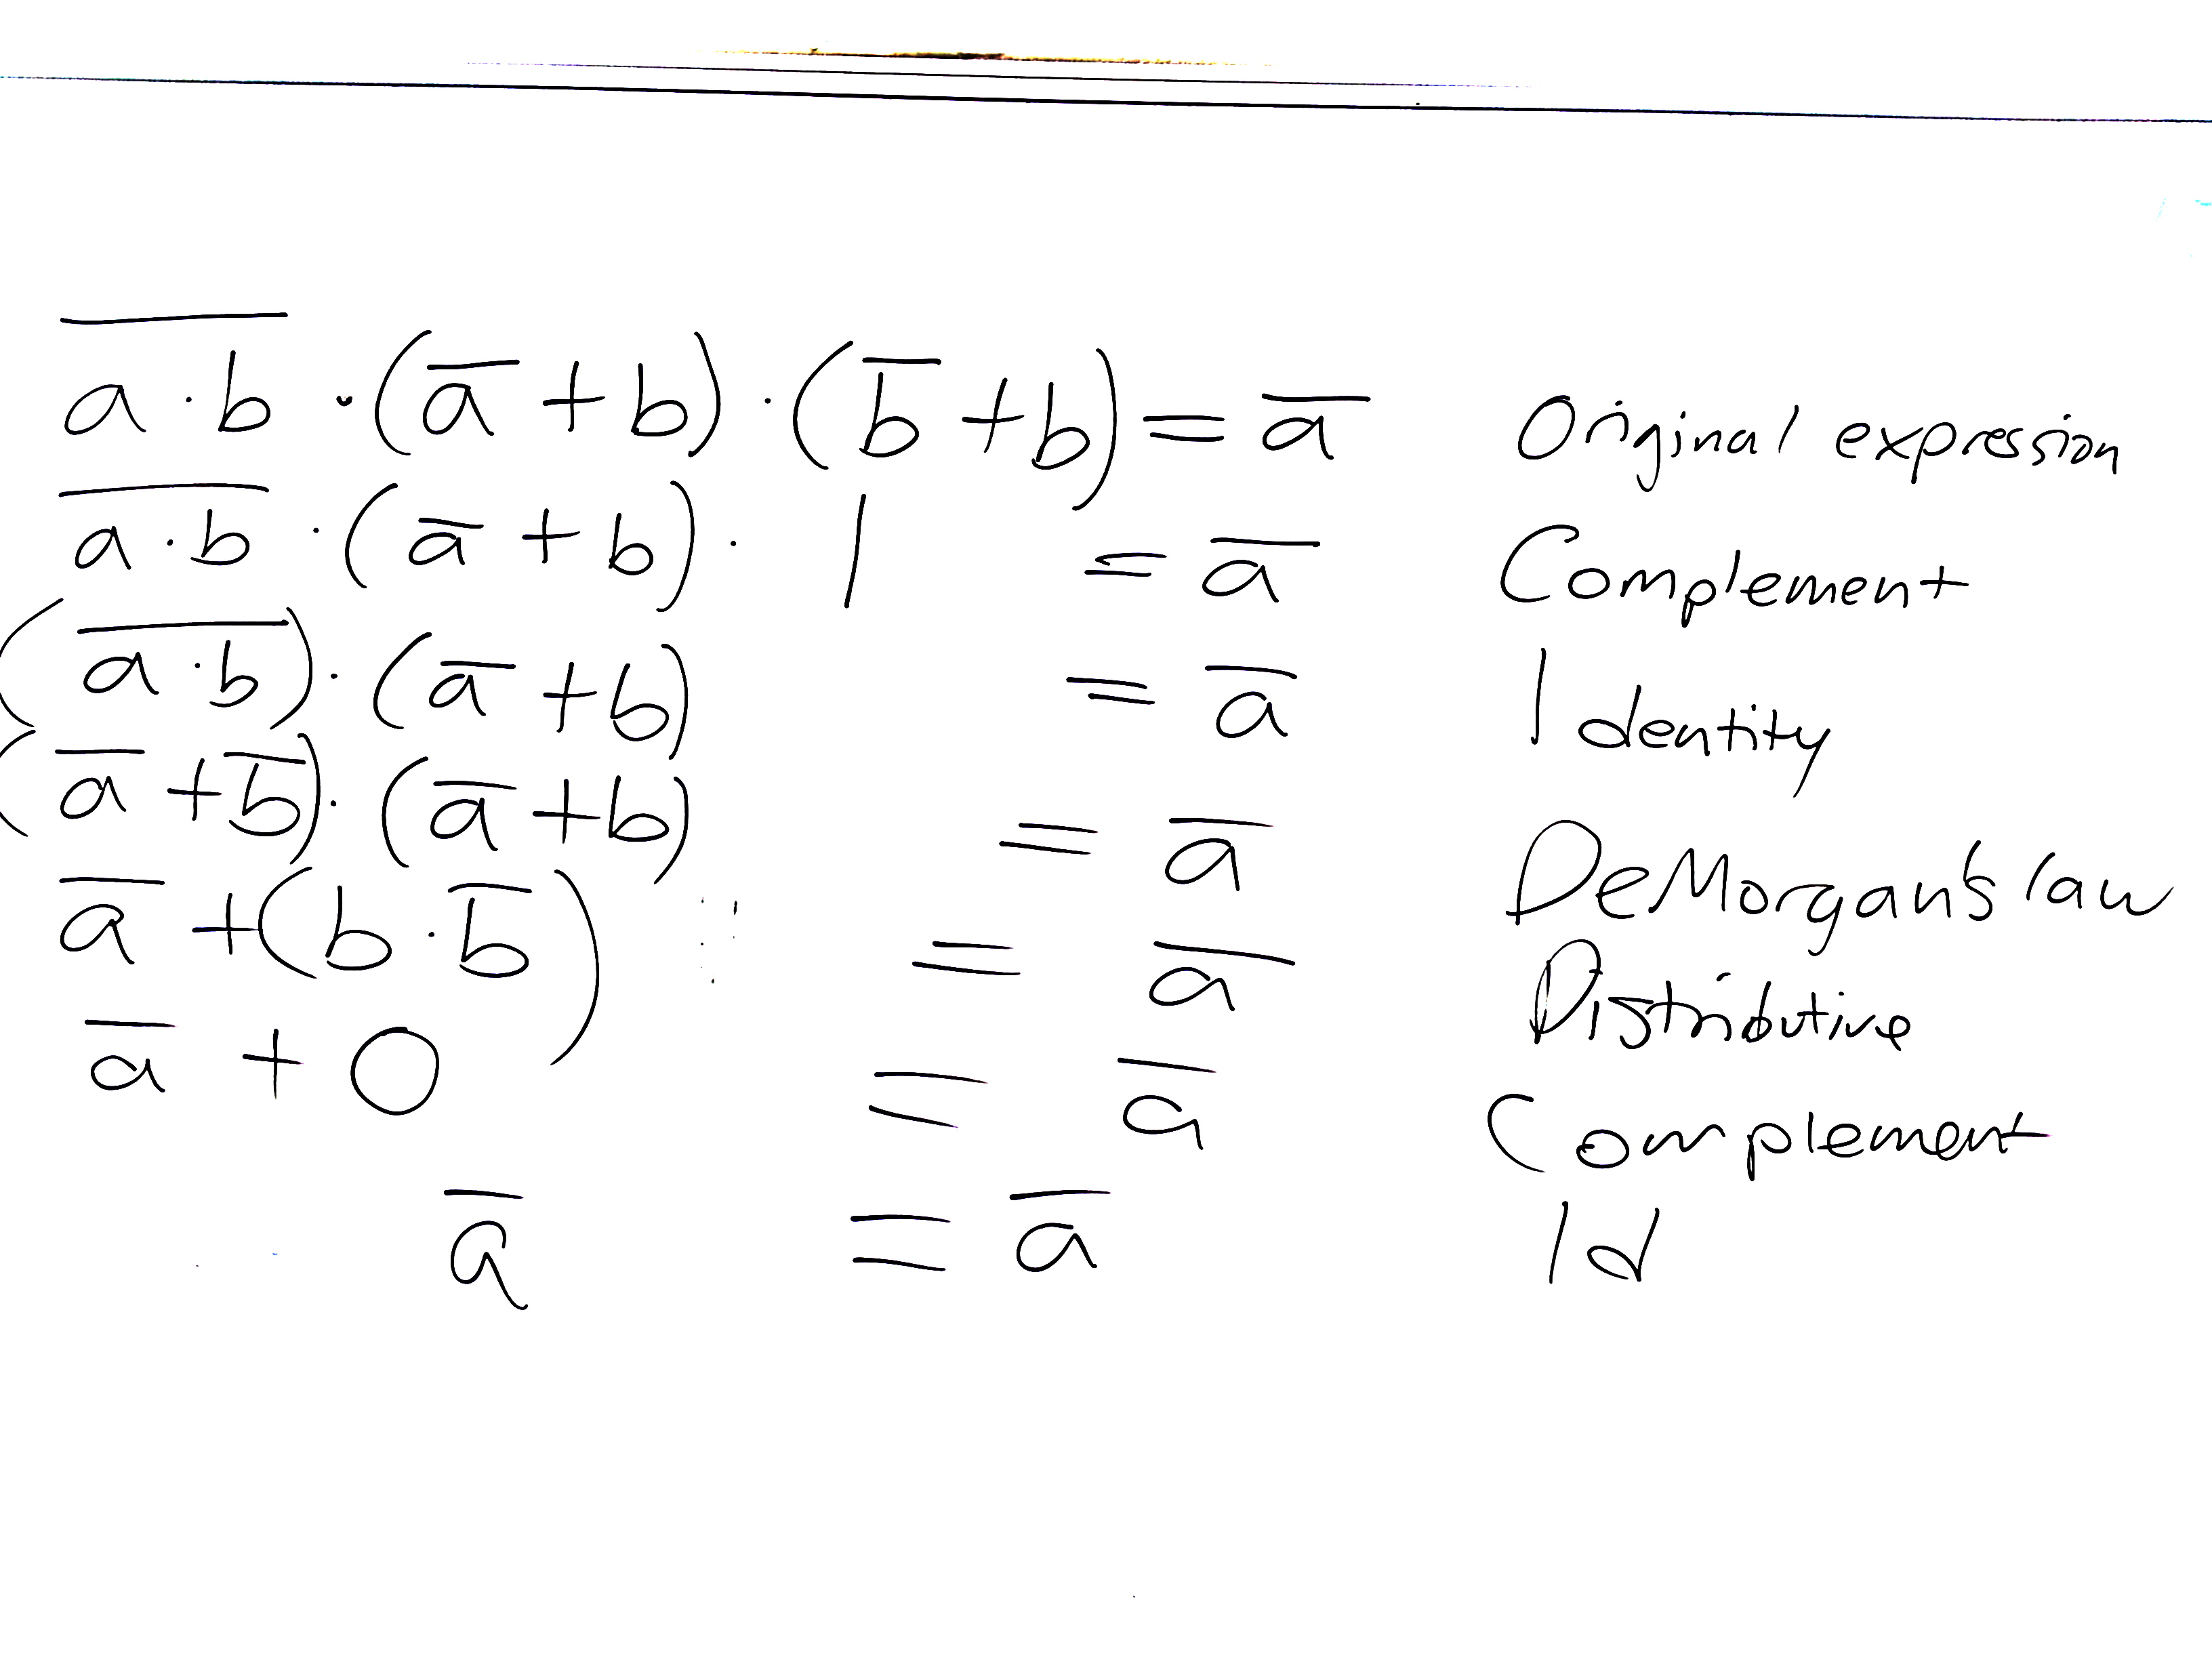 a̅ ̅·̅ ̅b̅ · (a̅ + b) · (b̅ + b) = a̅ Original expression
a̅ ̅·̅ ̅b̅ · (a̅ + b) · 1 = a̅ Complement
(a̅ ̅·̅ ̅b̅) · (a̅ + b) = a̅ Identity
(a̅ + b̅) · (a̅ + b) = a̅ DeMorgan's law
a̅ + (b · b̅) = a̅ Distributive
a̅ + 0 = a̅ Complement
a̅ = a̅ Id